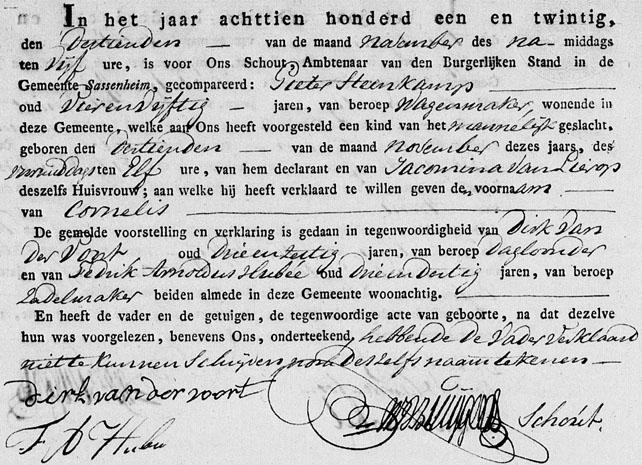 In het jaar achttien honderd een en twintig,
den Dertienden — van de maand November des na- middags
ten Vijf ure, is voor Ons Schout, Ambtenaar van den Burgerlijken Stand in de
Gemeente Sassenheim, gecompareerd: Pieter Steenkamp
oud Vierenvijftig — jaren, van beroep Wagenmaker, wonende in
deze Gemeente, welke aan Ons heeft voorgesteld een kind van het mannelijk geslacht,
geboren den Dertienden — van de maand November dezes jaars, des
voormiddags ten Elf ure, van hem declarant en van Jacomina Van Lierop
deszelfs Huisvrouw; aan welke hij heeft verklaard te willen geven de voornaam —
van Cornelis
De gemelde voorstelling en verklaring is gedaan in tegenwoordigheid van Dirk Van
Der Voort oud jaren, van beroep Daglooner
en van Fedrik Arnoldus Hubee oud Drieendertig jaren, van beroep
Zadelmaker beiden almede in deze Gemeente woonachtig.
En heeft de vader en de getuigen, de tegenwoordige acte van geboorte, na dat dezelve
hun was voorgelezen, benevens Ons, onderteekend, hebbende de Vader Verklaard
niet te kunnen Schrijven nog deszelfs naam tekenen —
Derk van der voort
F A Hubee
Schout.